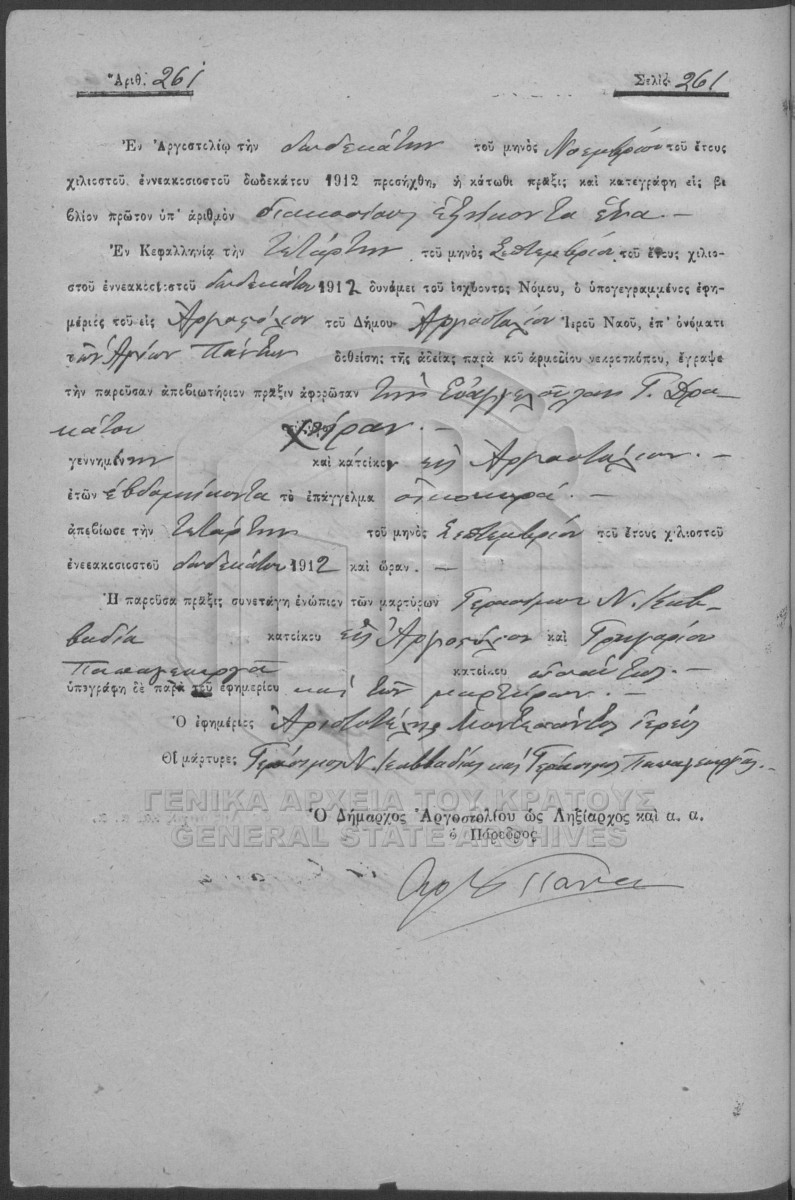 Ἀριθ. 261 Σελὶς 261
Ἐν Ἀργοστολίῳ τὴν δωδεκάτην τοῦ μηνὸς Νοεμβρίου τοῦ ἔτους
χιλιοστοῦ ἐννεακοσιοστοῦ δωδεκάτου 1912 προσήχθη, ἡ κάτωθι πρᾶξις καὶ κατεγράφη εἰς βι
βλίον πρῶτον ὑπ' ἀριθμὸν διακοσίους ἑξήκοντα ἕνα. —
Ἐν Κεφαλληνίᾳ τὴν τετάρτην τοῦ μηνὸς Σεπτεμβρίου τοῦ ἔτους χιλιο-
στοῦ ἐννεακοσιοστοῦ δωδεκάτου 1912 δυνάμει τοῦ ἰσχύοντος Νόμου, ὁ ὑπογεγραμμένος ἐφη-
μέριος τοῦ εἰς Ἀργοστόλιον τοῦ Δήμου Ἀργοστολίου Ἱεροῦ Ναοῦ, ἐπ' ὀνόματι
τῶν Ἁγίων Πάντων δοθείσης τῆς ἀδείας παρὰ τοῦ ἁρμοδίου νεκροσκόπου, ἔγραψε
τὴν παροῦσαν ἀποβιωτήριον πρᾶξιν ἀφορῶσαν τὴν Εὐαγγελούλαν Γ. Δρα-
κάτου χήραν. —
γεννημένην καὶ κάτοικον εἰς Ἀργοστόλιον. —
ἐτῶν ἑβδομήκοντα τὸ ἐπάγγελμα οἰκοκυρά. —
ἀπεβίωσε τὴν τετάρτην τοῦ μηνὸς Σεπτεμβρίου τοῦ ἔτους χιλιοστοῦ
ἐνεεακοσιοστοῦ δωδεκάτου 1912 καὶ ὥραν. —
Ἡ παροῦσα πρᾶξις συνετάγη ἐνώπιον τῶν μαρτύρων Γερασίμου Ν. Καβ-
βαδία κατοίκου εἰς Ἀργοστόλιον καὶ Γρηγορίου
Παπαγεωργᾶ κατοίκου ὡσαύτως. —
ὑπεγράφη δὲ παρὰ τοῦ ἐφημερίου καὶ τῶν μαρτύρων. —
Ὁ ἐφημέριος Ἀριστοτέλης Μοντεσάντος Ἱερεύς
Οἱ μάρτυρες Γεράσιμος Ν. Καββαδίας καὶ Γεράσιμος Παπαγεωργᾶς. —
ΓΕΝΙΚΑ ΑΡΧΕΙΑ ΤΟΥ ΚΡΑΤΟΥΣ
Ὁ Δήμαρχος Ἀργοστολίου ὡς Ληξίαρχος καὶ α. α.
GENERAL STATE ARCHIVES
ὁ Πάρεδρος